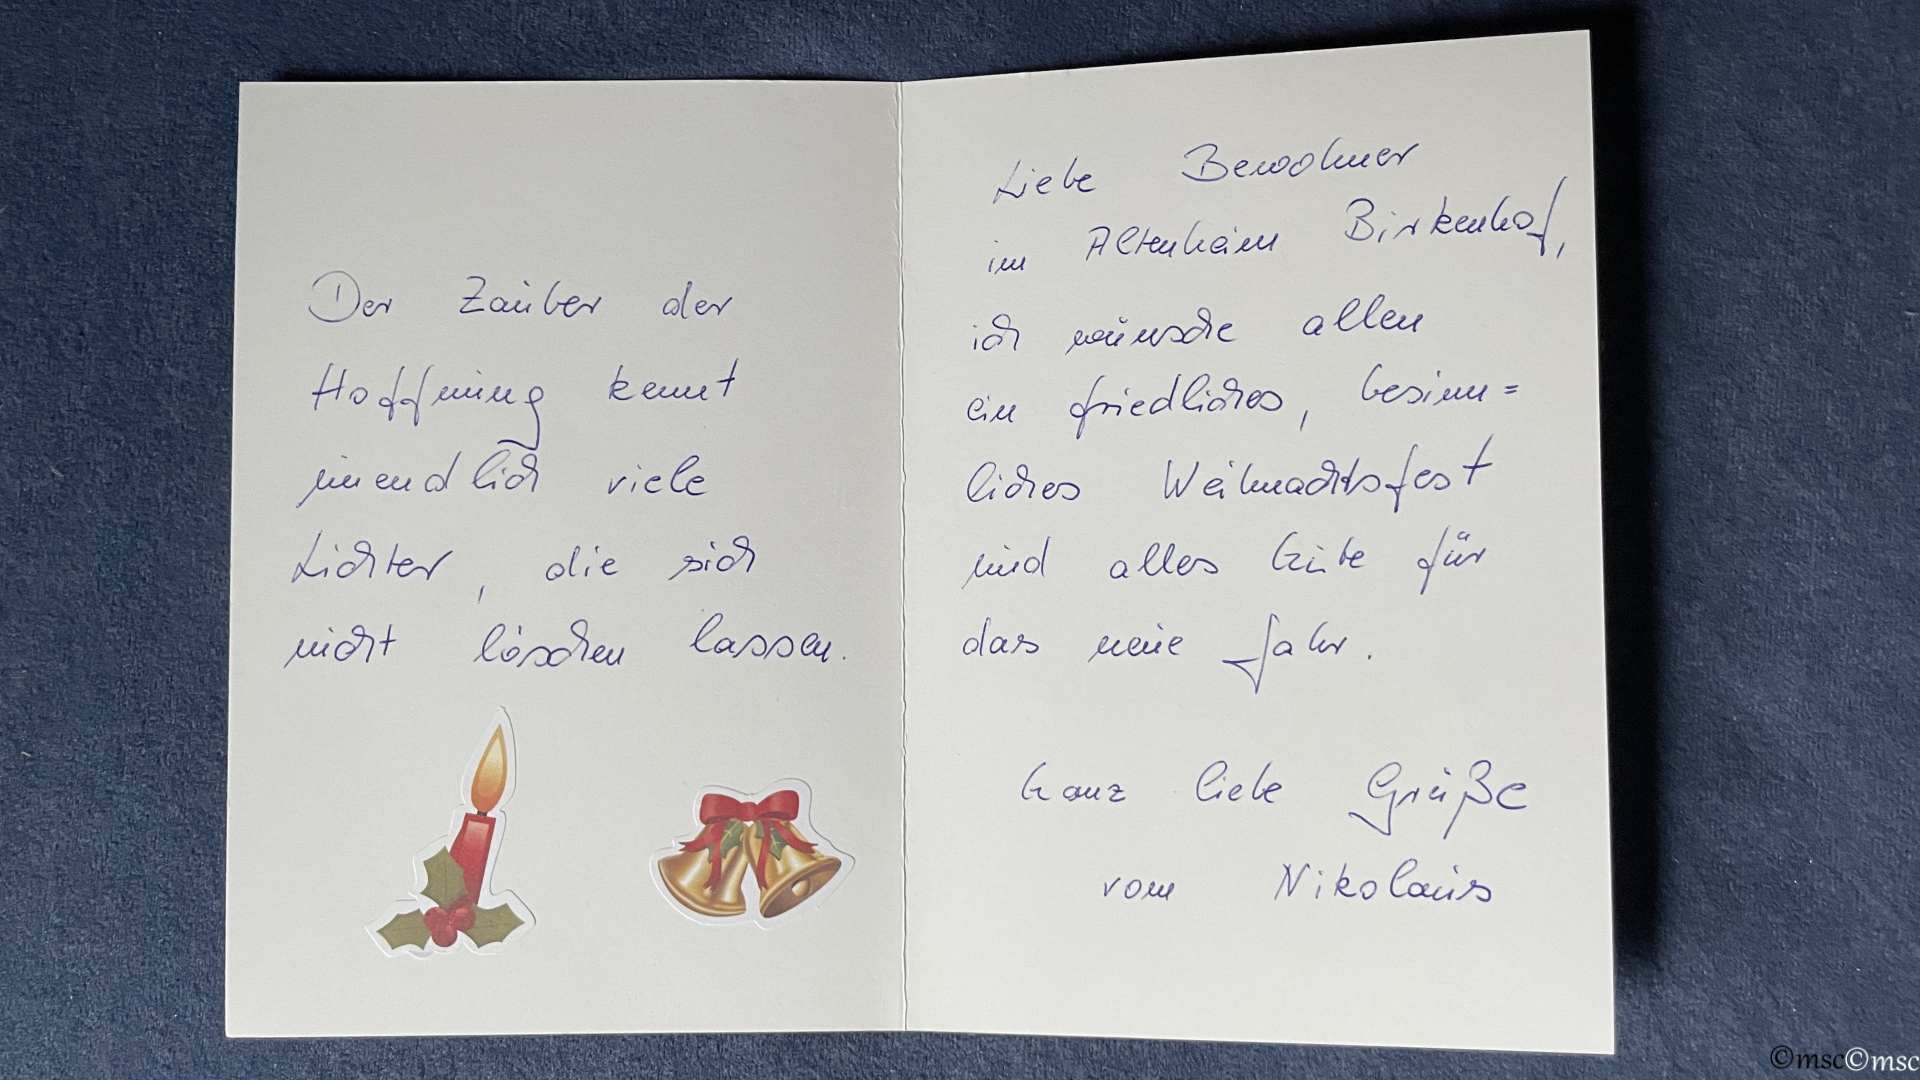 Der Zauber der
Hoffnung kennt
unendlich viele
Lichter, die sich
nicht löschen lassen.
Liebe Bewohner
im Altenheim Birkenhof,
ich wünsche allen
ein friedliches, besinn=
liches Weihnachtsfest
und alles Gute für
das neue Jahr.
Ganz liebe Grüße
vom Nikolaus
©msc©msc